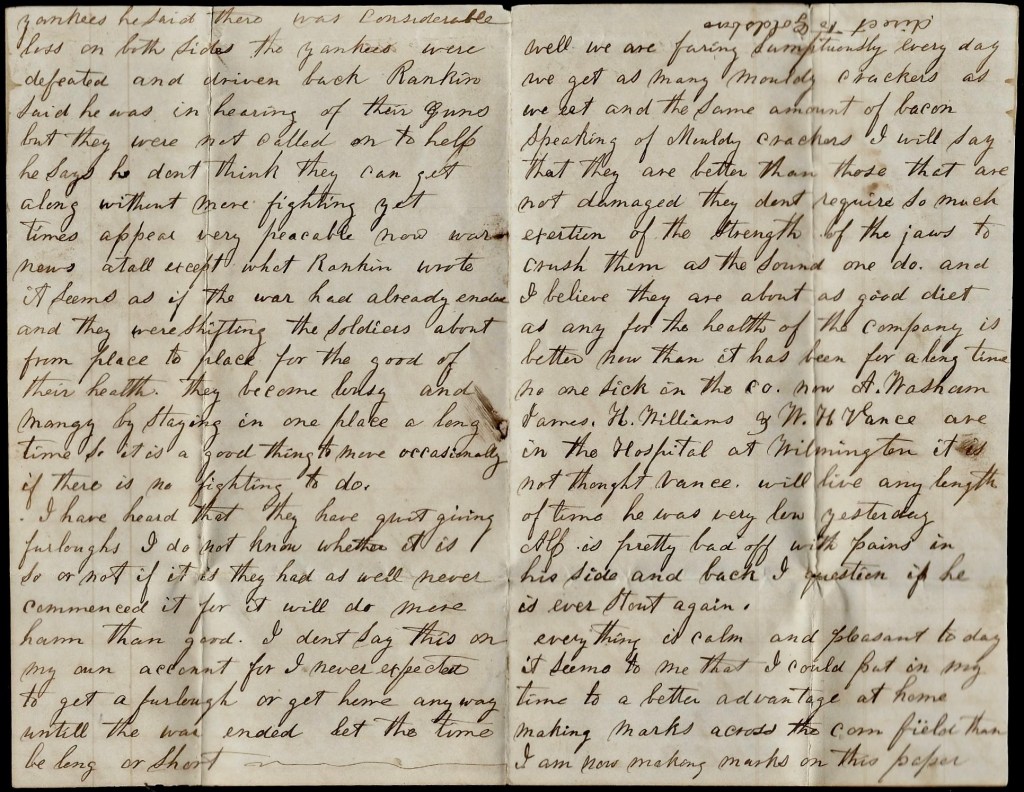 yankees he said there was considerable
loss on both sides the yankees were
defeated and driven back Rankin
said he was in hearing of their guns
but they were not called on to help
he says he dont think they can get
along without more fighting yet
times appear very peacable now war
news atall except what Rankin wrote
it seems as if the war had already ended
and they were shifting the soldiers about
from place to place for the good of
their health. they become lousy and
mangy by staying in one place a long
time so it is a good thing to move occasionally
if there is no fighting to do.
. I have heard that they have quit giving
furloughs I do not know whether it is
so or not if it is they had as well never
commenced it for it will do more
harm than good. I dont say this on
my own account for I never expected
to get a furlough or get home any way
untill the war ended let the time
be long or short
direct to Goldsboro
well we are faring sumptuously every day
we get as many mouldy crackers as
we eat and the same amount of bacon
speaking of Mouldy crackers I will say
that they are better than those that are
not damaged they dont require so much
exertion of the strength of the jaws to
crush them as the sound one do. and
I believe they are about as good diet
as any for the health of the company is
better now than it has been for a long time
no one sick in the co. now A. Washam
James. H. Williams & W. H Vance are
in the Hospital at Wilmington it is
not thought Vance. will live any length
of time he was very low yesterday
Alf. is pretty bad off with pains in
his side and back I question if he
is ever stout again.
everything is calm and pleasant to day
it seems to me that I could put in my
time to a better advantage at home
making marks across the corn field than
I am now making marks on this paper